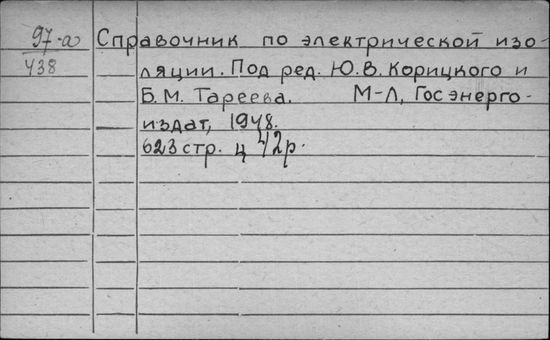 97-а Справочник по электрической изо-
438 ляции. Под ред. Ю.В. Корицкого и
Б.М. Тареева. М-Л, Госэнерго-
издат, 1948.
623 стр. ц 42р.